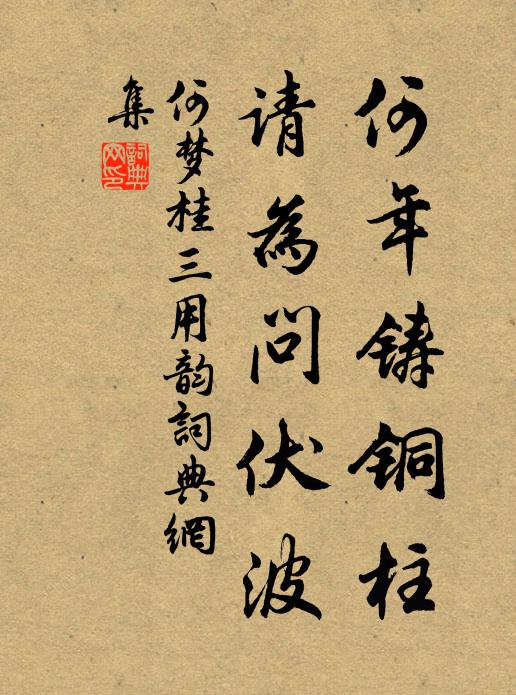 何年铸铜柱
请為问伏波
何梦桂三用韵詞典網
集
詞典网印